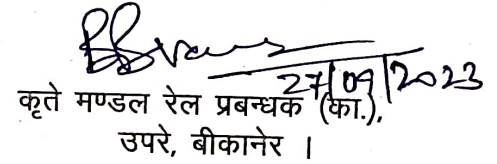 27/09/2023
कृते मण्डल रेल प्रबन्धक (का.),
उपरे, बीकानेर ।